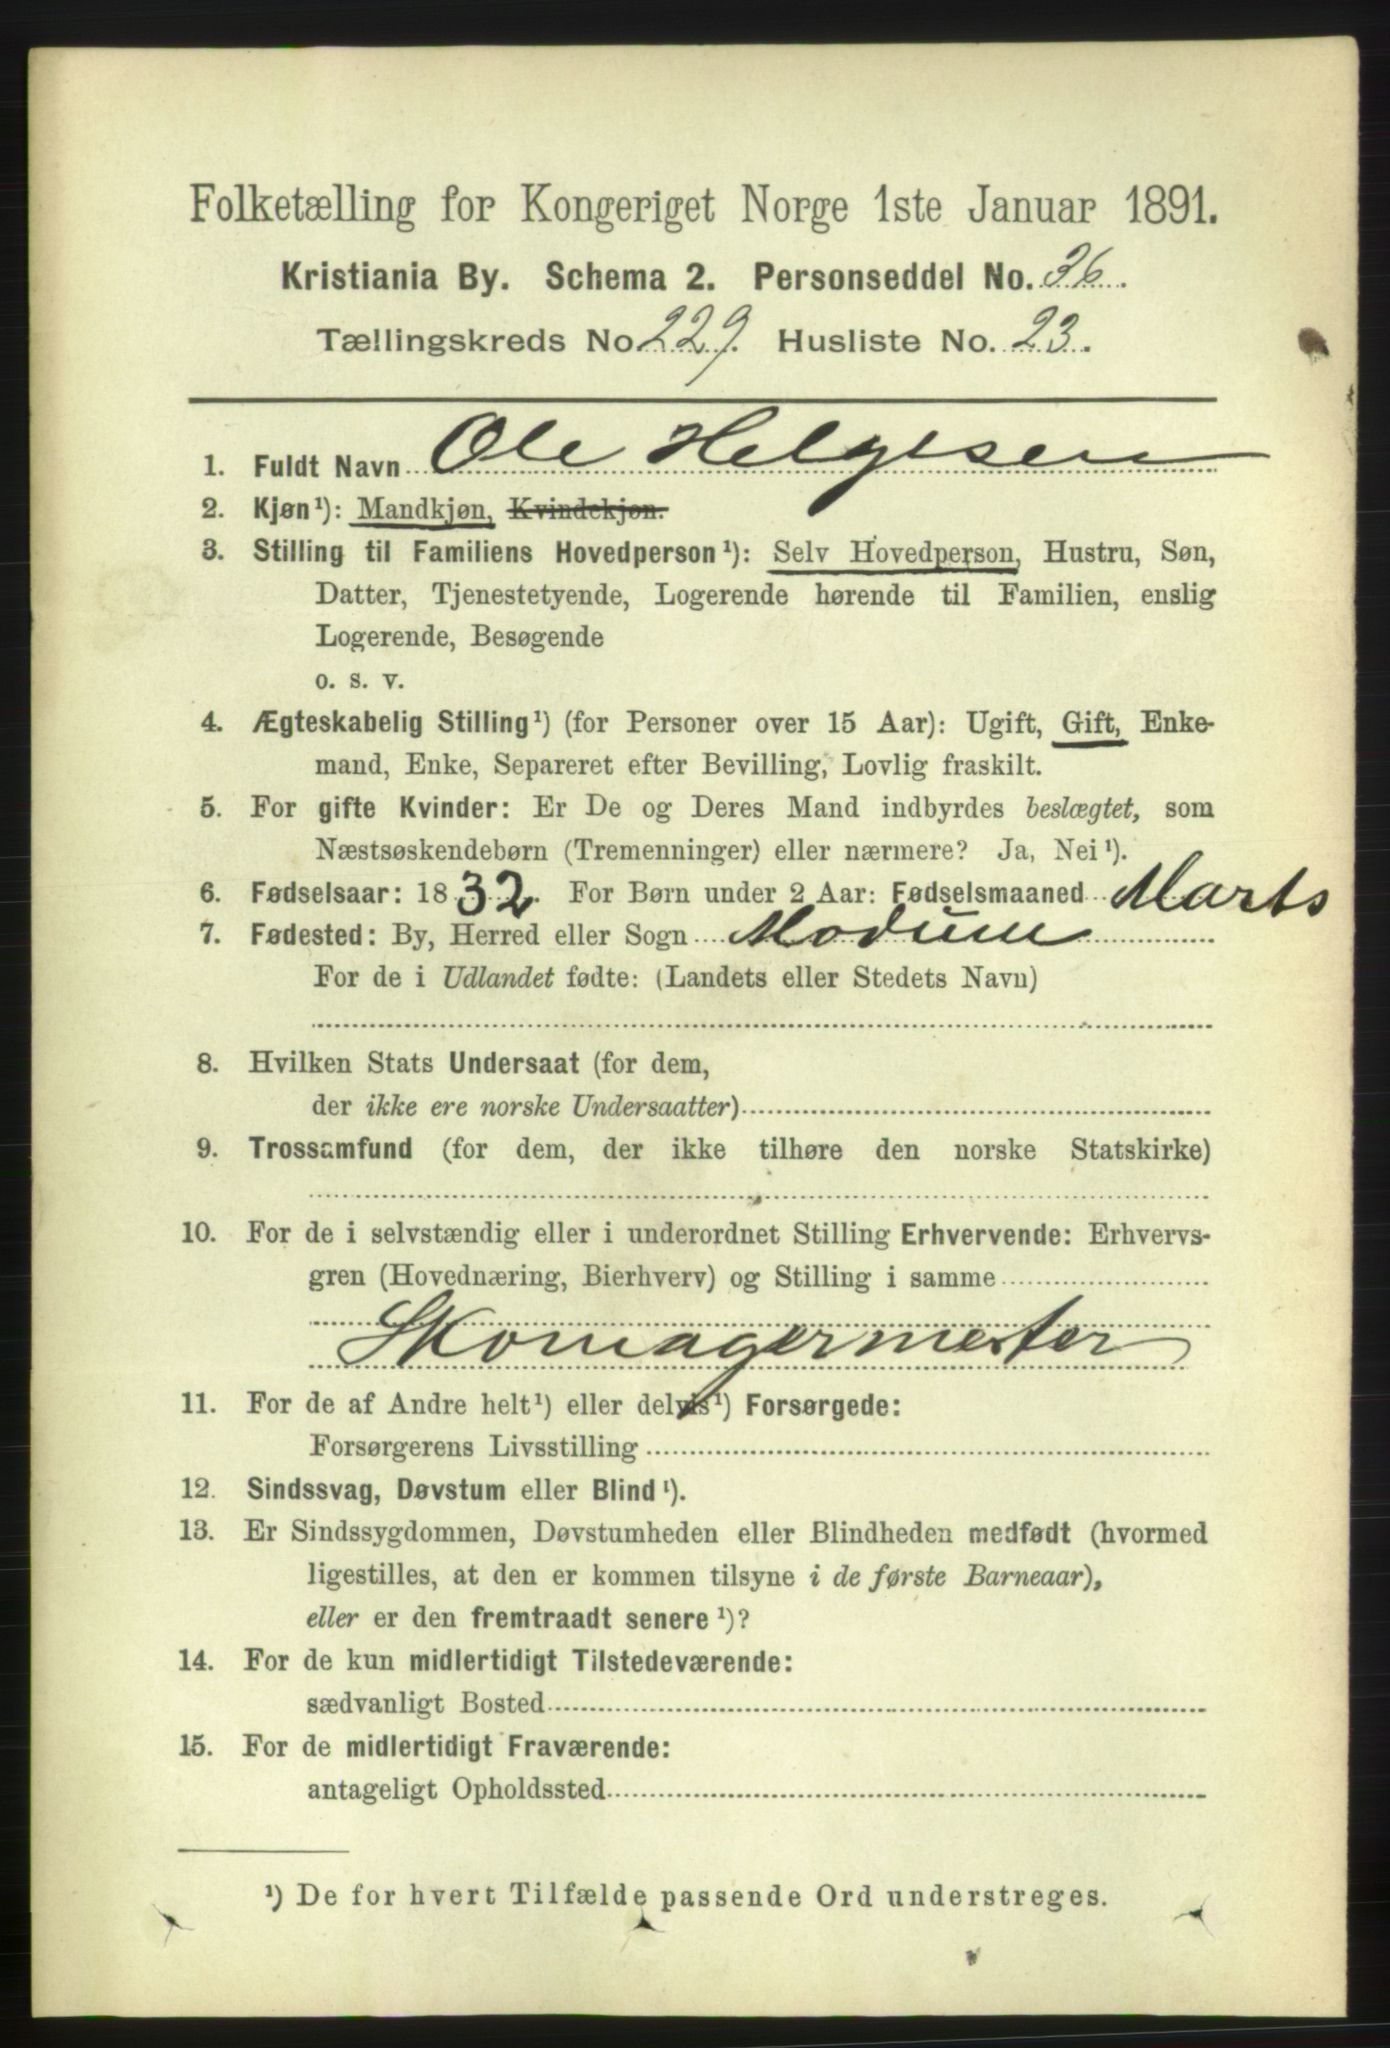 Folketælling for Kongeriget Norge 1ste Januar 1891.
Kristiania By. Schema 2. Personseddel No. 36.
Tællingskreds No. 229. Husliste No. 23.
1. Fuldt Navn Ole Helgesen
2. Kjøn¹): Mandkjøn, Kvindekjøn.
3. Stilling til Familiens Hovedperson¹): Selv Hovedperson, Hustru, Søn,
Datter, Tjenestetyende, Logerende hørende til Familien, enslig
Logerende, Besøgende
o. s. v.
4. Ægteskabelig Stilling¹) (for Personer over 15 Aar): Ugift, Gift, Enke-
mand, Enke, Separeret efter Bevilling, Lovlig fraskilt.
5. For gifte Kvinder: Er De og Deres Mand indbyrdes beslægtet, som
Næstsøskendebørn (Tremenninger) eller nærmere? Ja, Nei¹).
6. Fødselsaar: 1832. For Børn under 2 Aar: Fødselsmaaned Marts
7. Fødested: By, Herred eller Sogn Modum
For de i Udlandet fødte: (Landets eller Stedets Navn)
8. Hvilken Stats Undersaat (for dem,
der ikke ere norske Undersaatter)
9. Trossamfund (for dem, der ikke tilhøre den norske Statskirke)
10. For de i selvstændig eller i underordnet Stilling Erhvervende: Erhvervs-
gren (Hovednæring, Bierhverv) og Stilling i samme
Skomagermester
11. For de af Andre helt¹) eller delvis¹) Forsørgede:
Forsørgerens Livsstilling
12. Sindssvag, Døvstum eller Blind¹).
13. Er Sindssygdommen, Døvstumheden eller Blindheden medfødt (hvormed
ligestilles, at den er kommen tilsyne i de første Barneaar),
eller er den fremtraadt senere¹)?
14. For de kun midlertidigt Tilstedeværende:
sædvanligt Bosted
15. For de midlertidigt Fraværende:
antageligt Opholdssted
¹) De for hvert Tilfælde passende Ord understreges.